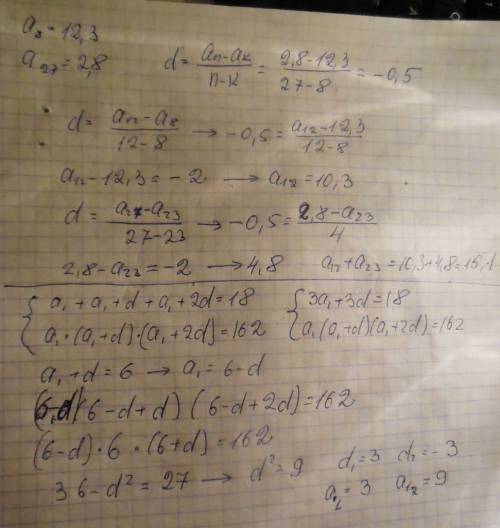 a₈ = 12,3
a₂₇ = 2,8 d = (aₙ - aₖ)/(n - k) = (2,8 - 12,3)/(27 - 8) = -0,5
d = (a₁₂ - a₈)/(12 - 8) → -0,5 = (a₁₂ - 12,3)/(12 - 8)
a₁₂ - 12,3 = -2 → a₁₂ = 10,3
d = (a₂₇ - a₂₃)/(27 - 23) → -0,5 = (2,8 - a₂₃)/4
2,8 - a₂₃ = -2 → 4,8 a₁₂ + a₂₃ = 10,3 + 4,8 = 15,1
{ a₁ + a₁ + d + a₁ + 2d = 18 { 3a₁ + 3d = 18
a₁·(a₁ + d)·(a₁ + 2d) = 162 a₁(a₁ + d)(a₁ + 2d) = 162
a₁ + d = 6 → a₁ = 6 - d
(6 - d)(6 - d + d)(6 - d + 2d) = 162
(6 - d)·6·(6 + d) = 162
36 - d² = 27 → d² = 9 d₁ = 3 d₂ = -3
a₁ = 3 a₁₂ = 9